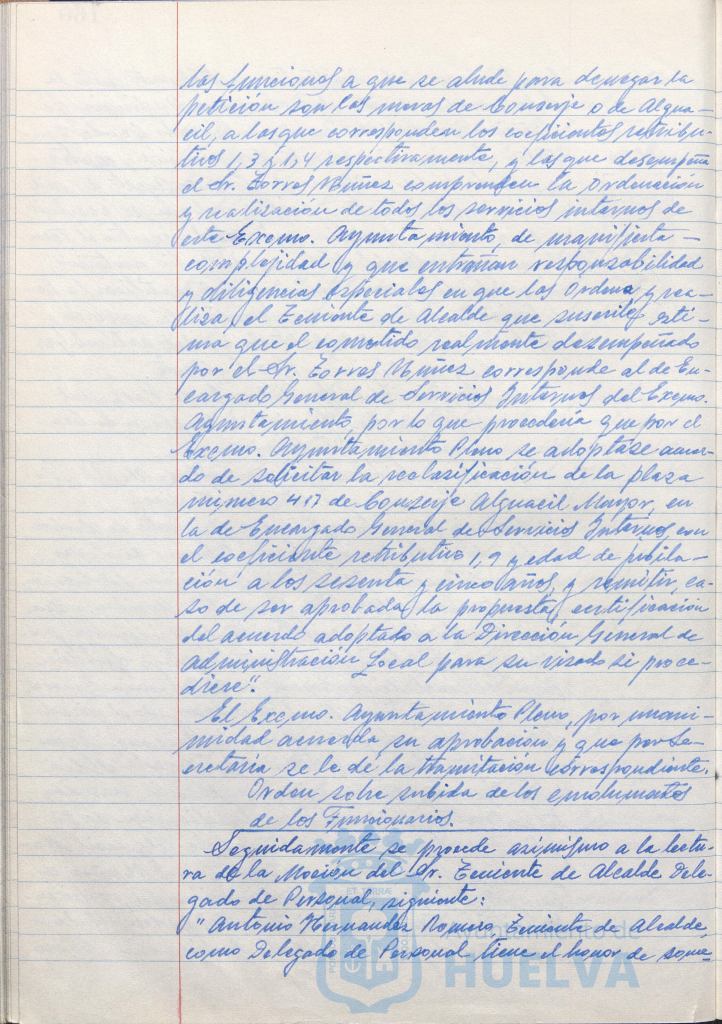 las funciones a que se alude para denegar la
petición son las meras de Conserje o de Algua-
cil, a las que corresponden los coeficientes retribu-
tivos 1,3 y 1,4 respectivamente, y las que desempeña
el Sr. Torres Núñez comprenden la ordenación
y realización de todos los servicios internos de
este Excmo. Ayuntamiento, de manifiesta
complejidad y que entrañan responsabilidad
y diligencias especiales en que las ordena y rea-
liza, el Teniente de Alcalde que suscribe esti-
ma que el cometido realmente desempeñado
por el Sr. Torres Núñez corresponde al de En-
cargado General de Servicios Internos del Excmo.
Ayuntamiento, por lo que procedería que por el
Excmo. Ayuntamiento Pleno se adoptase acuer-
do de solicitar la reclasificación de la plaza
número 417 de Conserje Alguacil Mayor, en
la de Encargado General de Servicios Internos, con
el coeficiente retributivo 1,9 y edad de jubila-
ción a los sesenta y cinco años, y remitir, ca-
so de ser aprobada la propuesta, certificación
del acuerdo adoptado a la Dirección General de
Administración Local para su visado si proce-
diere".
El Excmo. Ayuntamiento Pleno, por unani-
midad acuerda su aprobación y que por Se-
cretaría se le dé la tramitación correspondiente.
Orden sobre subida de los emolumentos
de los Funcionarios.
Seguidamente se procede asimismo a la lectu-
ra de la Moción del Sr. Teniente de Alcalde Dele-
gado de Personal, siguiente:
"Antonio Hernandez Romero, Teniente de Alcalde,
como Delegado de Personal tiene el honor de some-
Ayuntamiento de
HUELVA